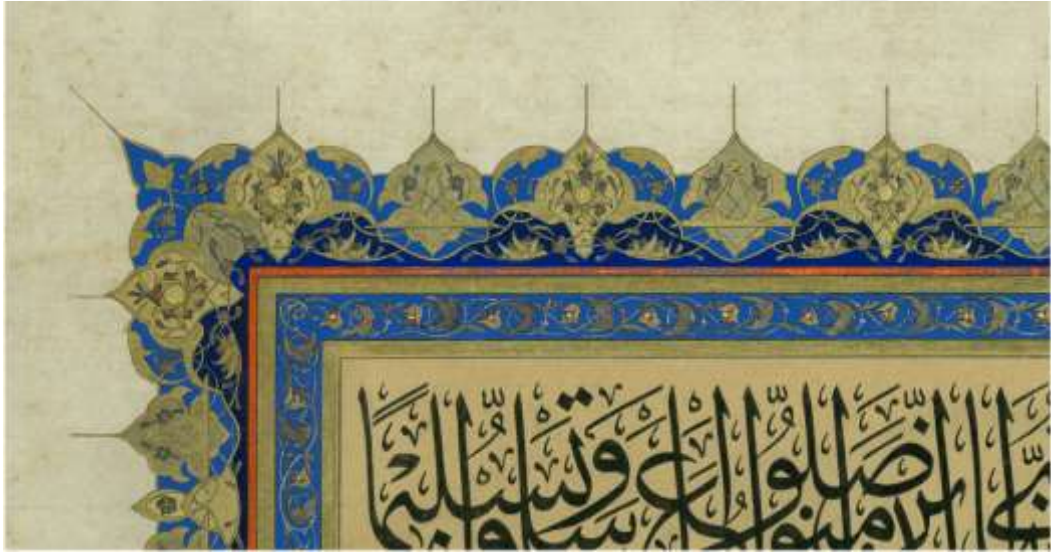 الَّذِينَ آمَنُوا صَلُّوا عَلَيْهِ وَسَلِّمُوا تَسْلِيمًا